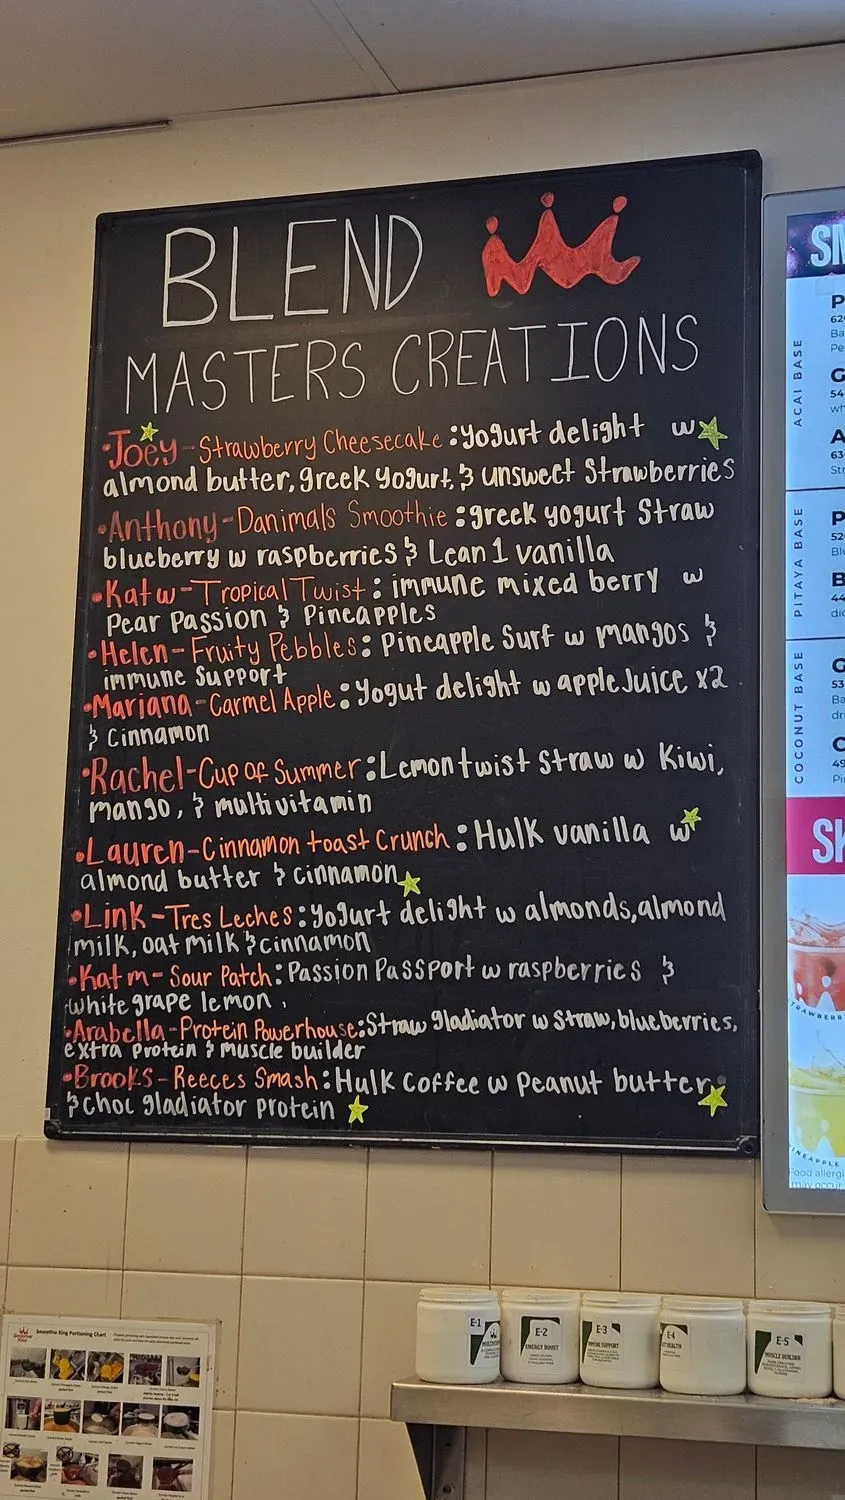 BLEND
MASTERS CREATIONS
•Joey-Strawberry Cheesecake:yogurt delight w
almond butter, greek yogurt, & unsweet Strawberries
•Anthony-Danimals Smoothie:greek yogurt Straw
blueberry w raspberries & Lean 1 vanilla
•Kat w-Tropical Twist: immune mixed berry w
Pear Passion & Pineapples
•Helen-Fruity Pebbles: Pineapple Surf w mangos &
immune Support
•Mariana-Carmel Apple:Yogut delight w apple Juice x2
& Cinnamon
•Rachel-Cup of Summer:Lemon twist Straw w Kiwi,
mango, & multivitamin
•Lauren-Cinnamon toast Crunch:Hulk vanilla w
almond butter & cinnamon
•Link-Tres Leches:yogurt delight w almonds, almond
milk, oat milk & cinnamon
•Kat m-Sour Patch:Passion Passport w raspberries &
white grape lemon
•Arabella-Protein Powerhouse:Straw gladiator w Straw, blueberries,
extra protein & muscle builder
•Brooks-Reeces Smash:Hulk Coffee w Peanut butter
& choc gladiator protein
ACAI BASE
PITAYA BASE
COCONUT BASE
Smoothie King Portioning Chart
E-1
E-2
ENERGY BOOST
E-3
IMMUNE SUPPORT
E-4
E-5
MUSCLE BUILDER